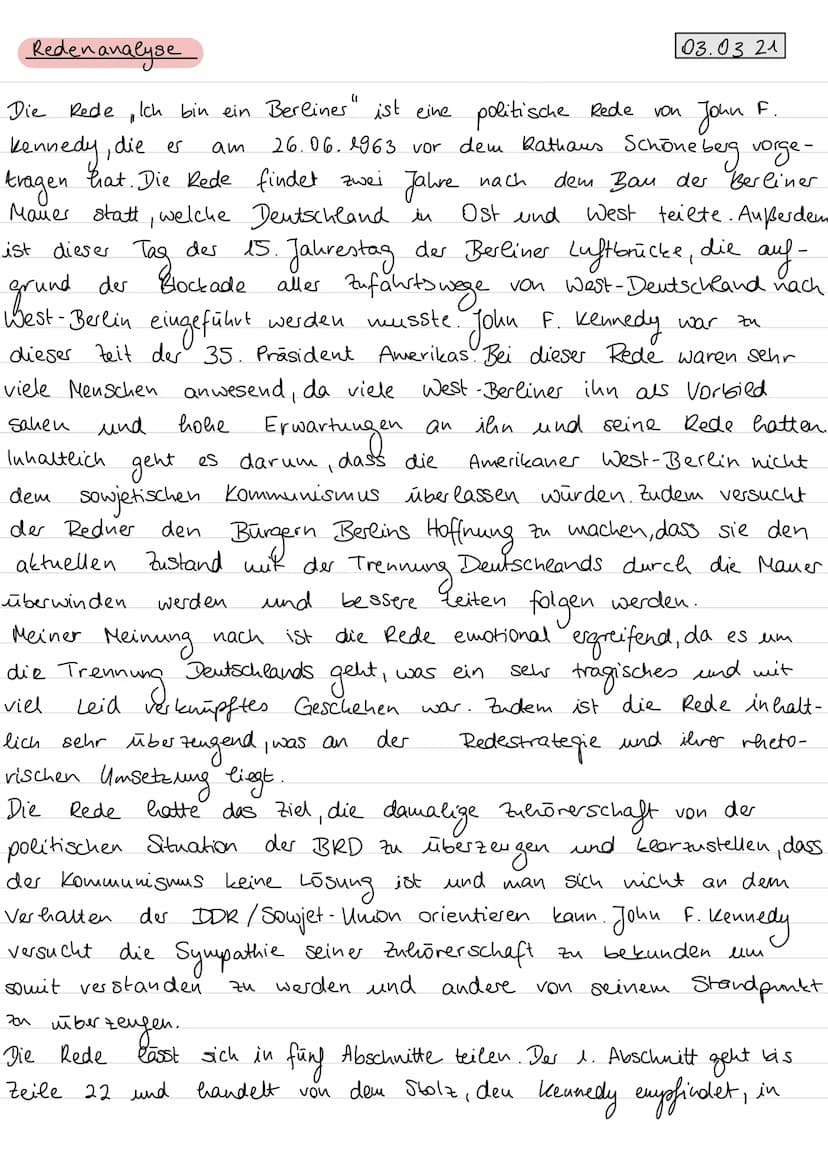 Redenanalyse
03.03 21
Die Rede „Ich bin ein Berliner" ist eine politische Rede von John F.
Kennedy, die er am 26.06.1963 vor dem Rathaus Schöneberg vorge-
tragen hat. Die Rede findet zwei Jahre nach dem Bau der Berliner
Mauer statt, welche Deutschland in Ost und West teilte. Außerdem
ist dieser Tag der 15. Jahrestag der Berliner Luftbrücke, die auf-
grund der Blockade aller Zufahrtswege von West-Deutschland nach
West-Berlin eingeführt werden musste. John F. Kennedy war zu
dieser Zeit der 35. Präsident Amerikas. Bei dieser Rede waren sehr
viele Menschen anwesend, da viele West-Berliner ihn als Vorbild
sahen und hohe Erwartungen an ihn und seine Rede hatten.
Inhaltlich geht es darum, dass die Amerikaner West-Berlin nicht
dem sowjetischen Kommunismus überlassen würden. Zudem versucht
der Redner den Bürgern Berlins Hoffnung zu machen, dass sie den
aktuellen Zustand mit der Trennung Deutschlands durch die Mauer
überwinden werden und bessere Zeiten folgen werden.
Meiner Meinung nach ist die Rede emotional ergreifend, da es um
die Trennung Deutschlands geht, was ein sehr tragisches und mit
viel Leid verknüpftes Geschehen war. Zudem ist die Rede inhalt-
lich sehr überzeugend, was an der Redestrategie und ihrer rheto-
rischen Umsetzung liegt.
Die Rede hatte das Ziel, die damalige Zuhörerschaft von der
politischen Situation der BRD zu überzeugen und klarzustellen, dass
der Kommunismus keine Lösung ist und man sich nicht an dem
Verhalten der DDR/Sowjet-Union orientieren kann. John F. Kennedy
versucht die Sympathie seiner Zuhörerschaft zu bekunden um
somit verstanden zu werden und andere von seinem Standpunkt
zu überzeugen.
Die Rede lässt sich in fünf Abschnitte teilen. Der 1. Abschnitt geht bis
Zeile 22 und handelt von dem Stolz, den Kennedy empfindet, in